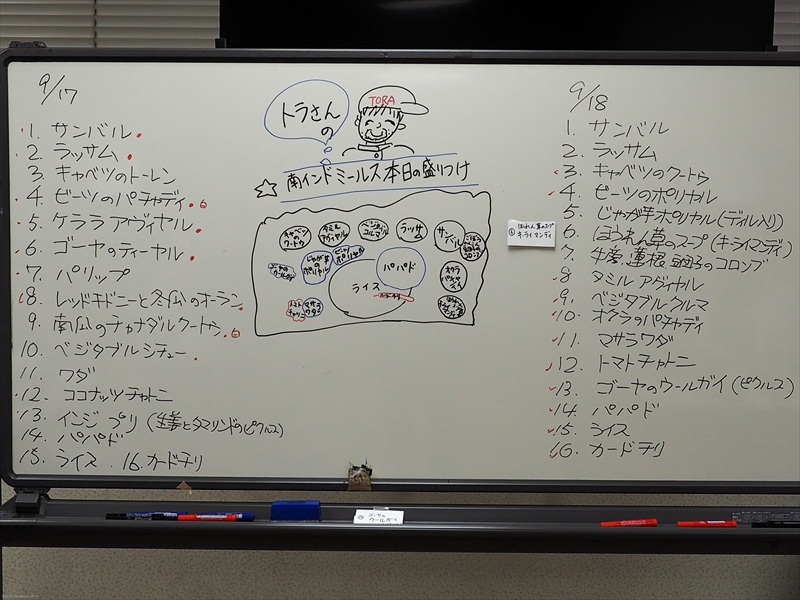 9/17
1. サンバル
2. ラッサム
3. キャベツのトーレン
4. ビーツのパチャディ
5. ケララ アヴィヤル
6. ゴーヤのティーヤル
7. パリップ
8. レッドキドニーと冬瓜のオーラン
9. 南瓜のチャナダルクートゥ
10. ベジタブルシチュー
11. ワダ
12. ココナッツチャトニ
13. インジ プリ (生姜とタマリンドのピクルス)
14. パパド
15. ライス . 16. カードチリ
トラさん
の
TORA
☆ 南インドミールス本日の盛りつけ
キャベツ
クートゥ
タミル
アヴィヤル
ベジタブル
クルマ
ラッサム
サンバル
ゴーヤの
ウールガイ
じゃが芋
の
ポリヤル
ビーツ
ポリヤル
パパド
ライス
カードチリ
オクラ
パチャ
ディ
トマト
チャトニ
マサラ
ワダ
⑥ ほうれん草のスープ
キーライ マンディ
9/18
1. サンバル
2. ラッサム
3. キャベツのクートゥ
4. ビーツのポリヤル
5. じゃが芋ポリヤル(ディル入り)
6 ほうれん草のスープ(キーライマンディ)
7. 牛蒡、蓮根、茄子のコロンブ
8 タミル アヴィヤル
9. ベジタブルクルマ
10. オクラのパチャディ
11. マサラワダ
12. トマトチャトニ
13. ゴーヤのウールガイ (ピクルス)
14. パパド
15. ライス
16. カードチリ
⑬ ゴーヤの
ウールガイ